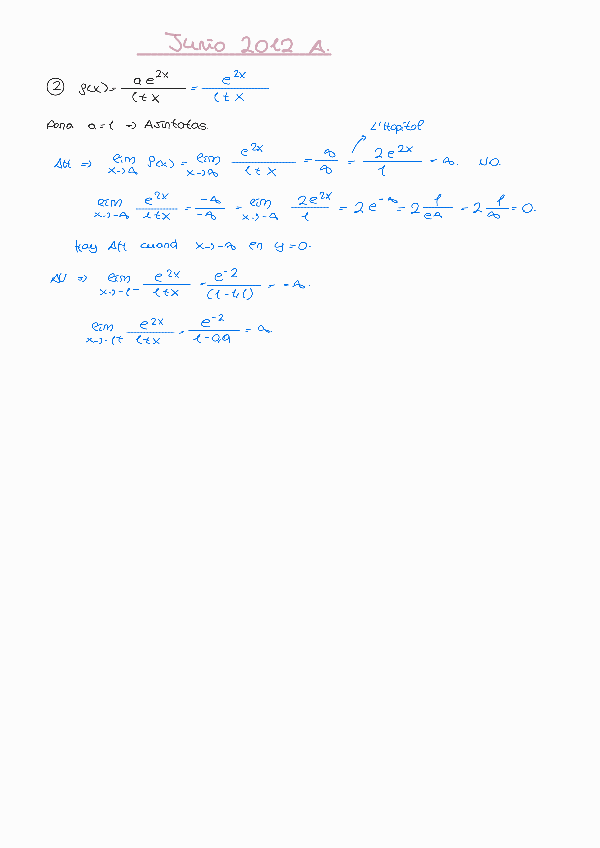 Junio 2012 A.
② f(x) = ae^{2x}/(1+x) = e^{2x}/(1+x)
Para a=1 → Asíntotas.
L'Hopital
AH ⇒ lim_{x→∞} f(x) = lim_{x→∞} e^{2x}/(1+x) = ∞/∞ = 2e^{2x}/1 = ∞. NO.
lim_{x→-∞} e^{2x}/(1+x) = -∞/-∞ = lim_{x→-∞} 2e^{2x}/1 = 2e^{-∞} = 2 1/e^∞ = 2 1/∞ = 0.
Hay AH cuand x→-∞ en y=0.
AV ⇒ lim_{x→-1-} e^{2x}/(1+x) = e^{-2}/(1-1,1) = -∞.
lim_{x→-1+} e^{2x}/(1+x) = e^{-2}/(1-0,9) = ∞.